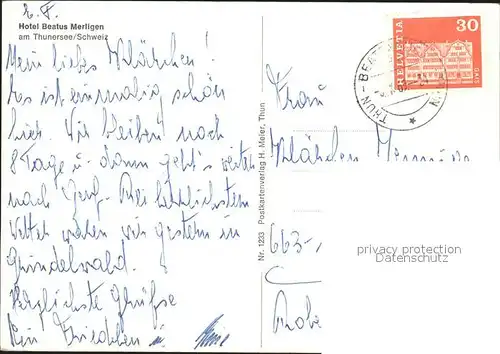 Z. F.
Hotel Beatus Merligen
am Thunersee/Schweiz
Mein liebes Klärchen!
Es ist einmalig schön
hier. Wir bleiben noch
8 Tage u. dann geht's weiter
nach Genf. Bei herrlichstem
Wetter waren wir gestern in
Grindelwald.
Herzlichste Grüße
Dein Friedchen u.
Nr. 1233 Postkartenverlag H. Meier, Thun
HELVETIA
30
GAIS
THUN-BEAT
Frau
Klärchen
663-
privacy protection
Robe